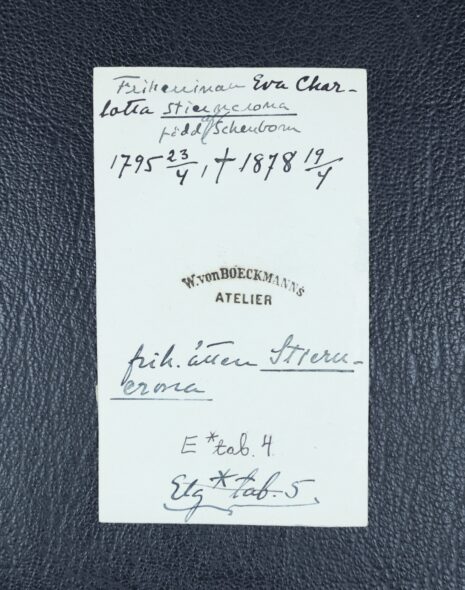 Friherrinnan Eva Char-
lotta Stierncrona
född af Scheuborn
1795 23/4, † 1878 19/4
W. von BOECKMANNS
ATELIER
frih. ätten Stiern-
crona
E * tab. 4
Elg * tab. 5.